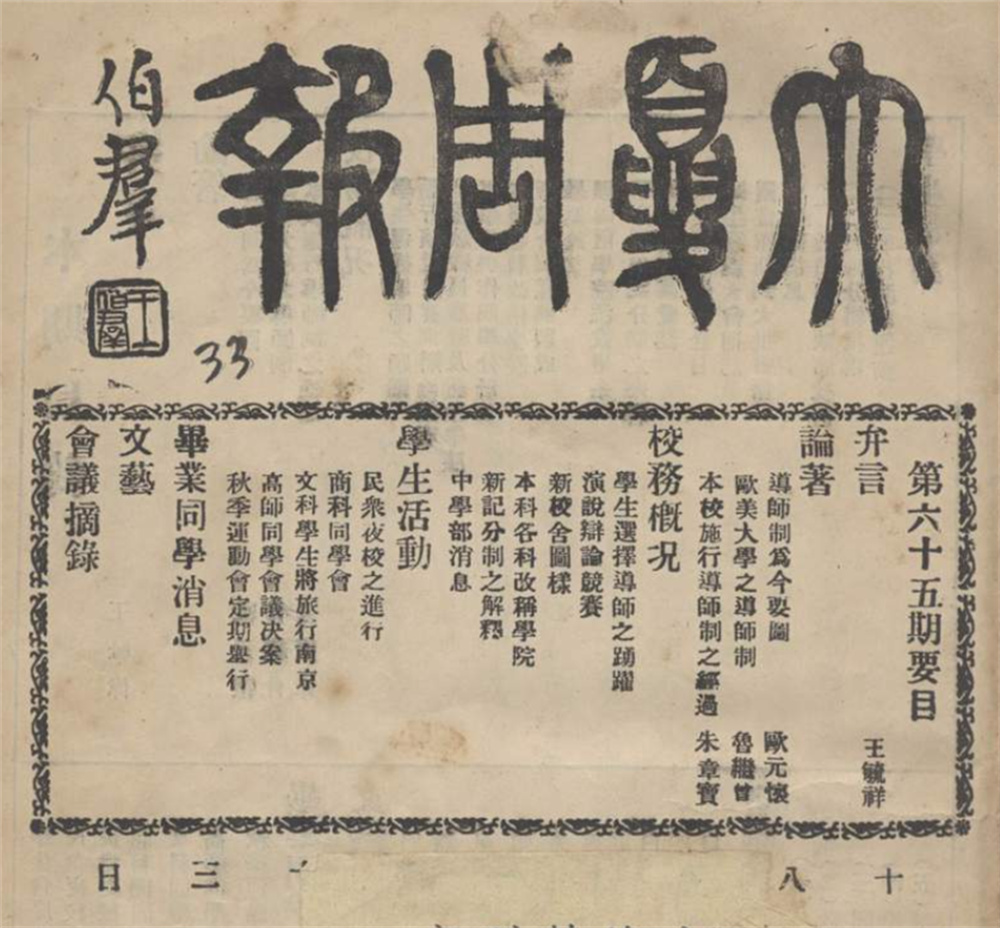 大夏周報
伯羣
王伯羣
33
第六十五期要目
弁言 王毓祥
論著
導師制爲今要圖 歐元懷
歐美大學之導師制 魯繼曾
本校施行導師制之經過 朱章寶
校務概況
學生選擇導師之踴躍
演說辯論競賽
新校舍圖樣
本科各科改稱學院
新記分制之解釋
中學部消息
學生活動
民衆夜校之進行
商科同學會
文科學生將旅行南京
高師同學會議決案
秋季運動會定期舉行
畢業同學消息
文藝
會議摘錄
十八
三日